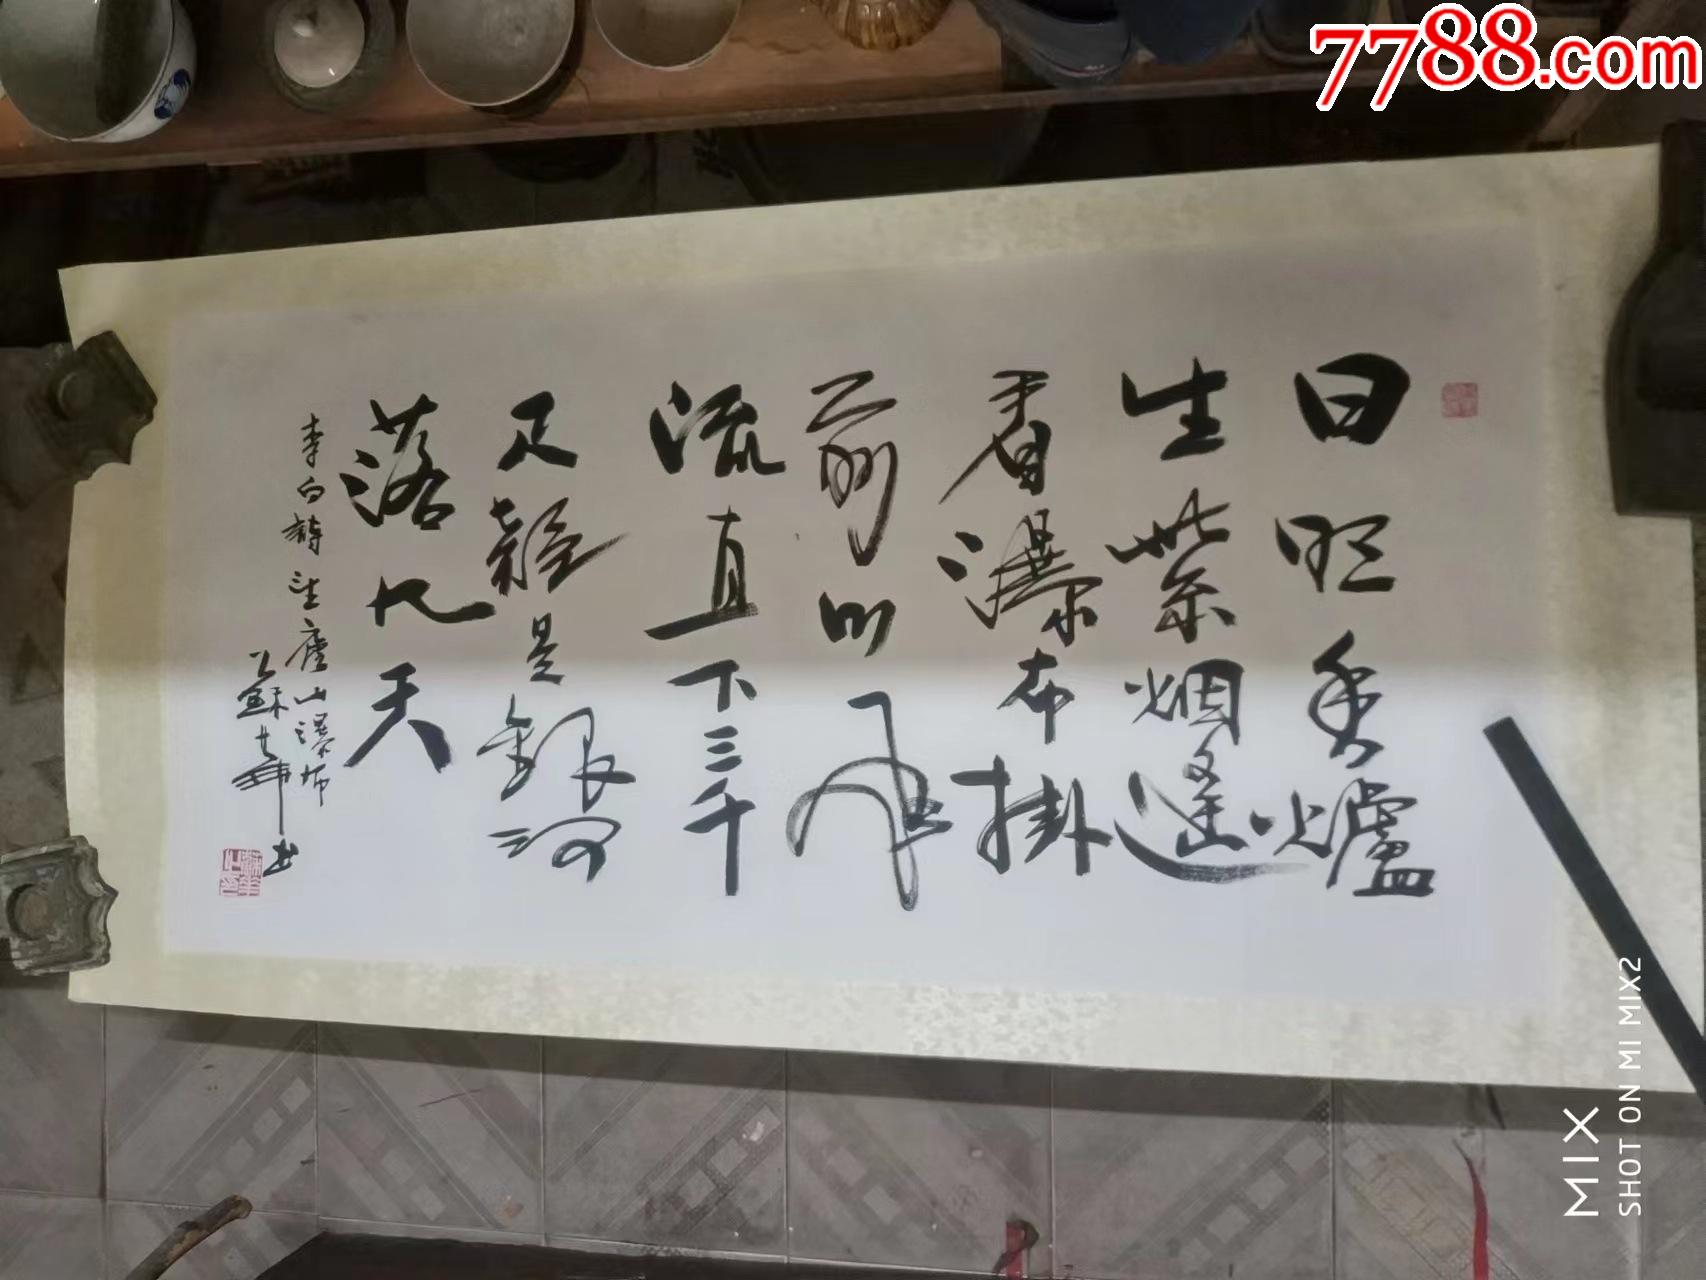 日照香爐
生紫烟遥
看瀑布掛
前川飛
流直下三千
尺疑是銀河
落九天
李白詩望廬山瀑布
書
7788.com
MIX
SHOT ON MI MIX2